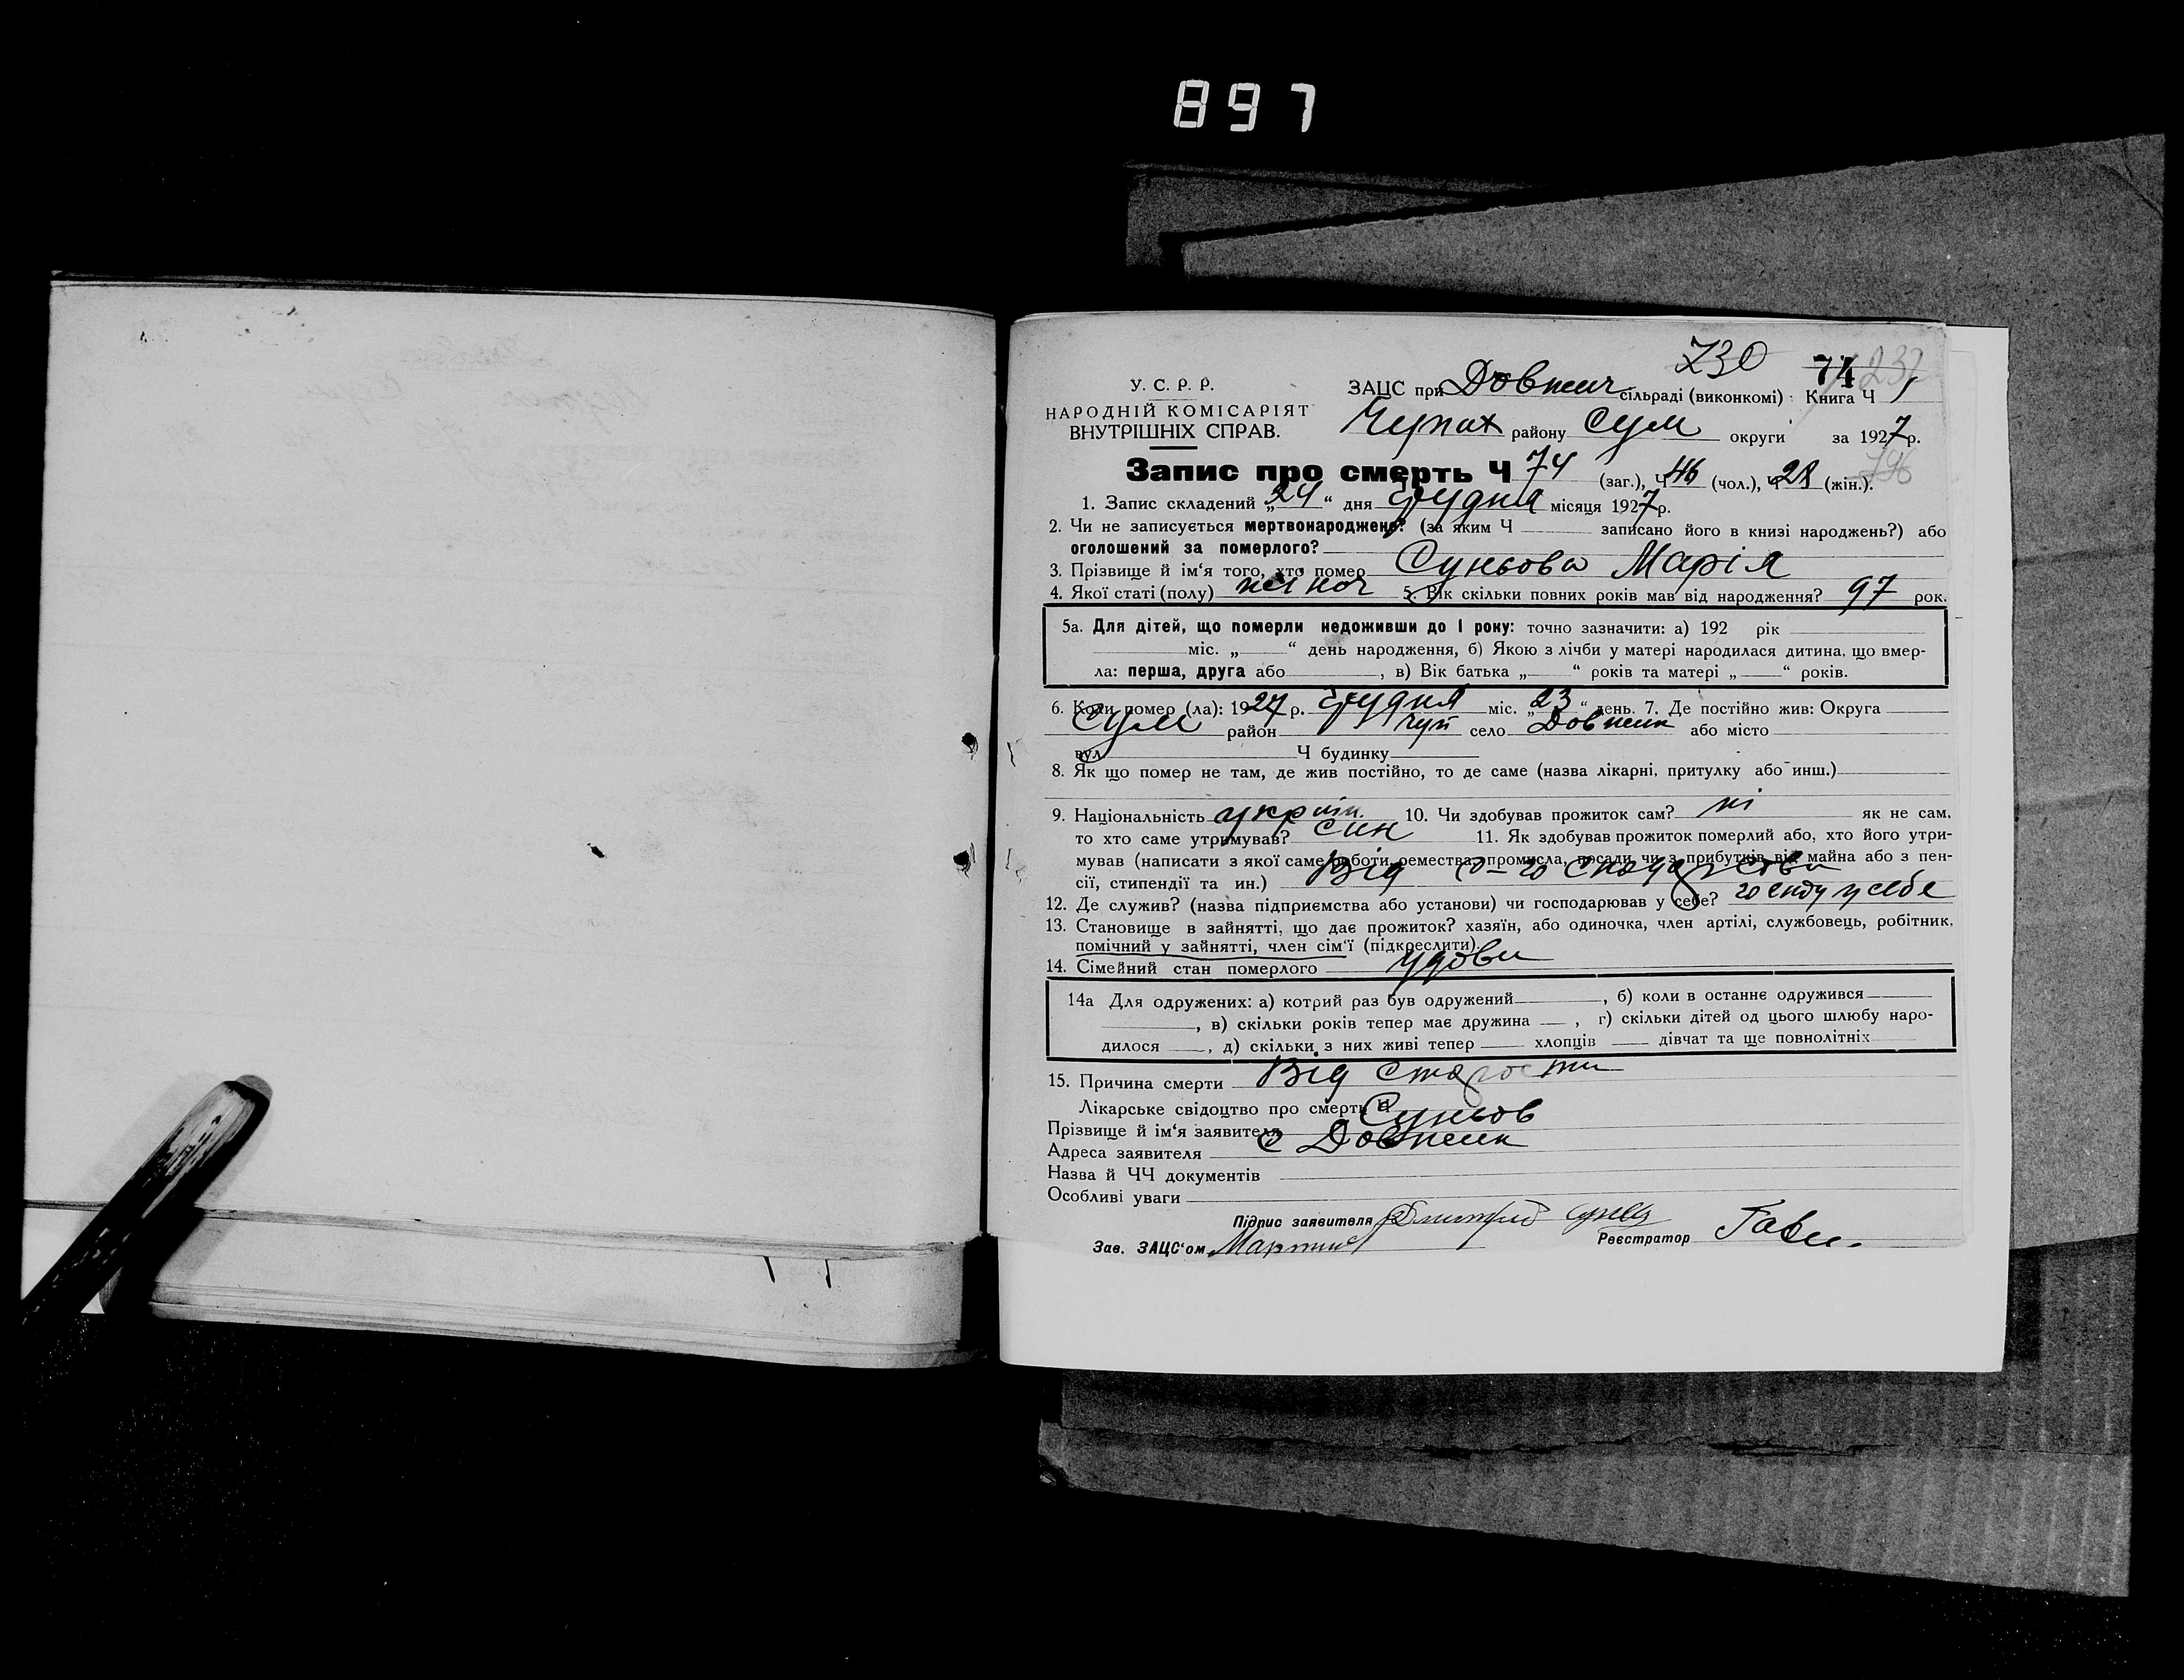 897
730 74 232
У. С. Р. Р.
НАРОДНІЙ КОМІСАРІЯТ
ВНУТРІШНІХ СПРАВ.
ЗАЦС при Довжич сільраді (виконкомі) Книга Ч 1
Чупах району Сум округи за 1927 р.
Запис про смерть Ч 74 (заг.), Ч 46 (чол.), Ч 28 (жін.).
1. Запис складений „24“ дня грудня місяця 1927 р.
2. Чи не записується мертвонароджене? (за яким Ч записано його в книзі народжень?) або
оголошений за померлого?
3. Прізвище й ім'я того, хто помер Суньова Марія
4. Якої статі (полу) жіноч 5. Вік скільки повних років мав від народження? 97 рок.
5а. Для дітей, що померли недоживши до 1 року: точно зазначити: а) 192 рік
міс. „ “ день народження, б) Якою з лічби у матері народилася дитина, що вмер-
ла: перша, друга або , в) Вік батька „ “ років та матері „ “ років.
6. Коли помер (ла): 1927 р. грудня міс. „23“ день. 7. Де постійно жив: Округа
Сум район Чуп село Довжик або місто
вул. Ч будинку
8. Як що помер не там, де жив постійно, то де саме (назва лікарні, притулку або инш.)
9. Національність україн. 10. Чи здобував прожиток сам? ні як не сам,
то хто саме утримував? син 11. Як здобував прожиток померлий або, хто його утри-
мував (написати з якої саме роботи, ремества, промисла, посади чи з прибутків від майна або з пен-
сії, стипендії та ин.) Від
12. Де служив? (назва підприємства або установи) чи господарював у себе? у себе
13. Становище в зайнятті, що дає прожиток? хазяїн, або одиночка, член артілі, службовець, робітник,
помічний у зайнятті, член сім'ї (підкреслити).
14. Сімейний стан померлого удова
14а Для одружених: а) котрий раз був одружений , б) коли в останнє одружився
, в) скільки років тепер має дружина , г) скільки дітей од цього шлюбу наро-
дилося , д) скільки з них живі тепер хлопців дівчат та ще повнолітніх
15. Причина смерти Від старости
Лікарське свідоцтво про смерть Ч
Прізвище й ім'я заявителя Суньов
Адреса заявителя с Довжик
Назва й ЧЧ документів
Особливі уваги
Підпис заявителя
Зав. ЗАЦС'ом Реєстратор